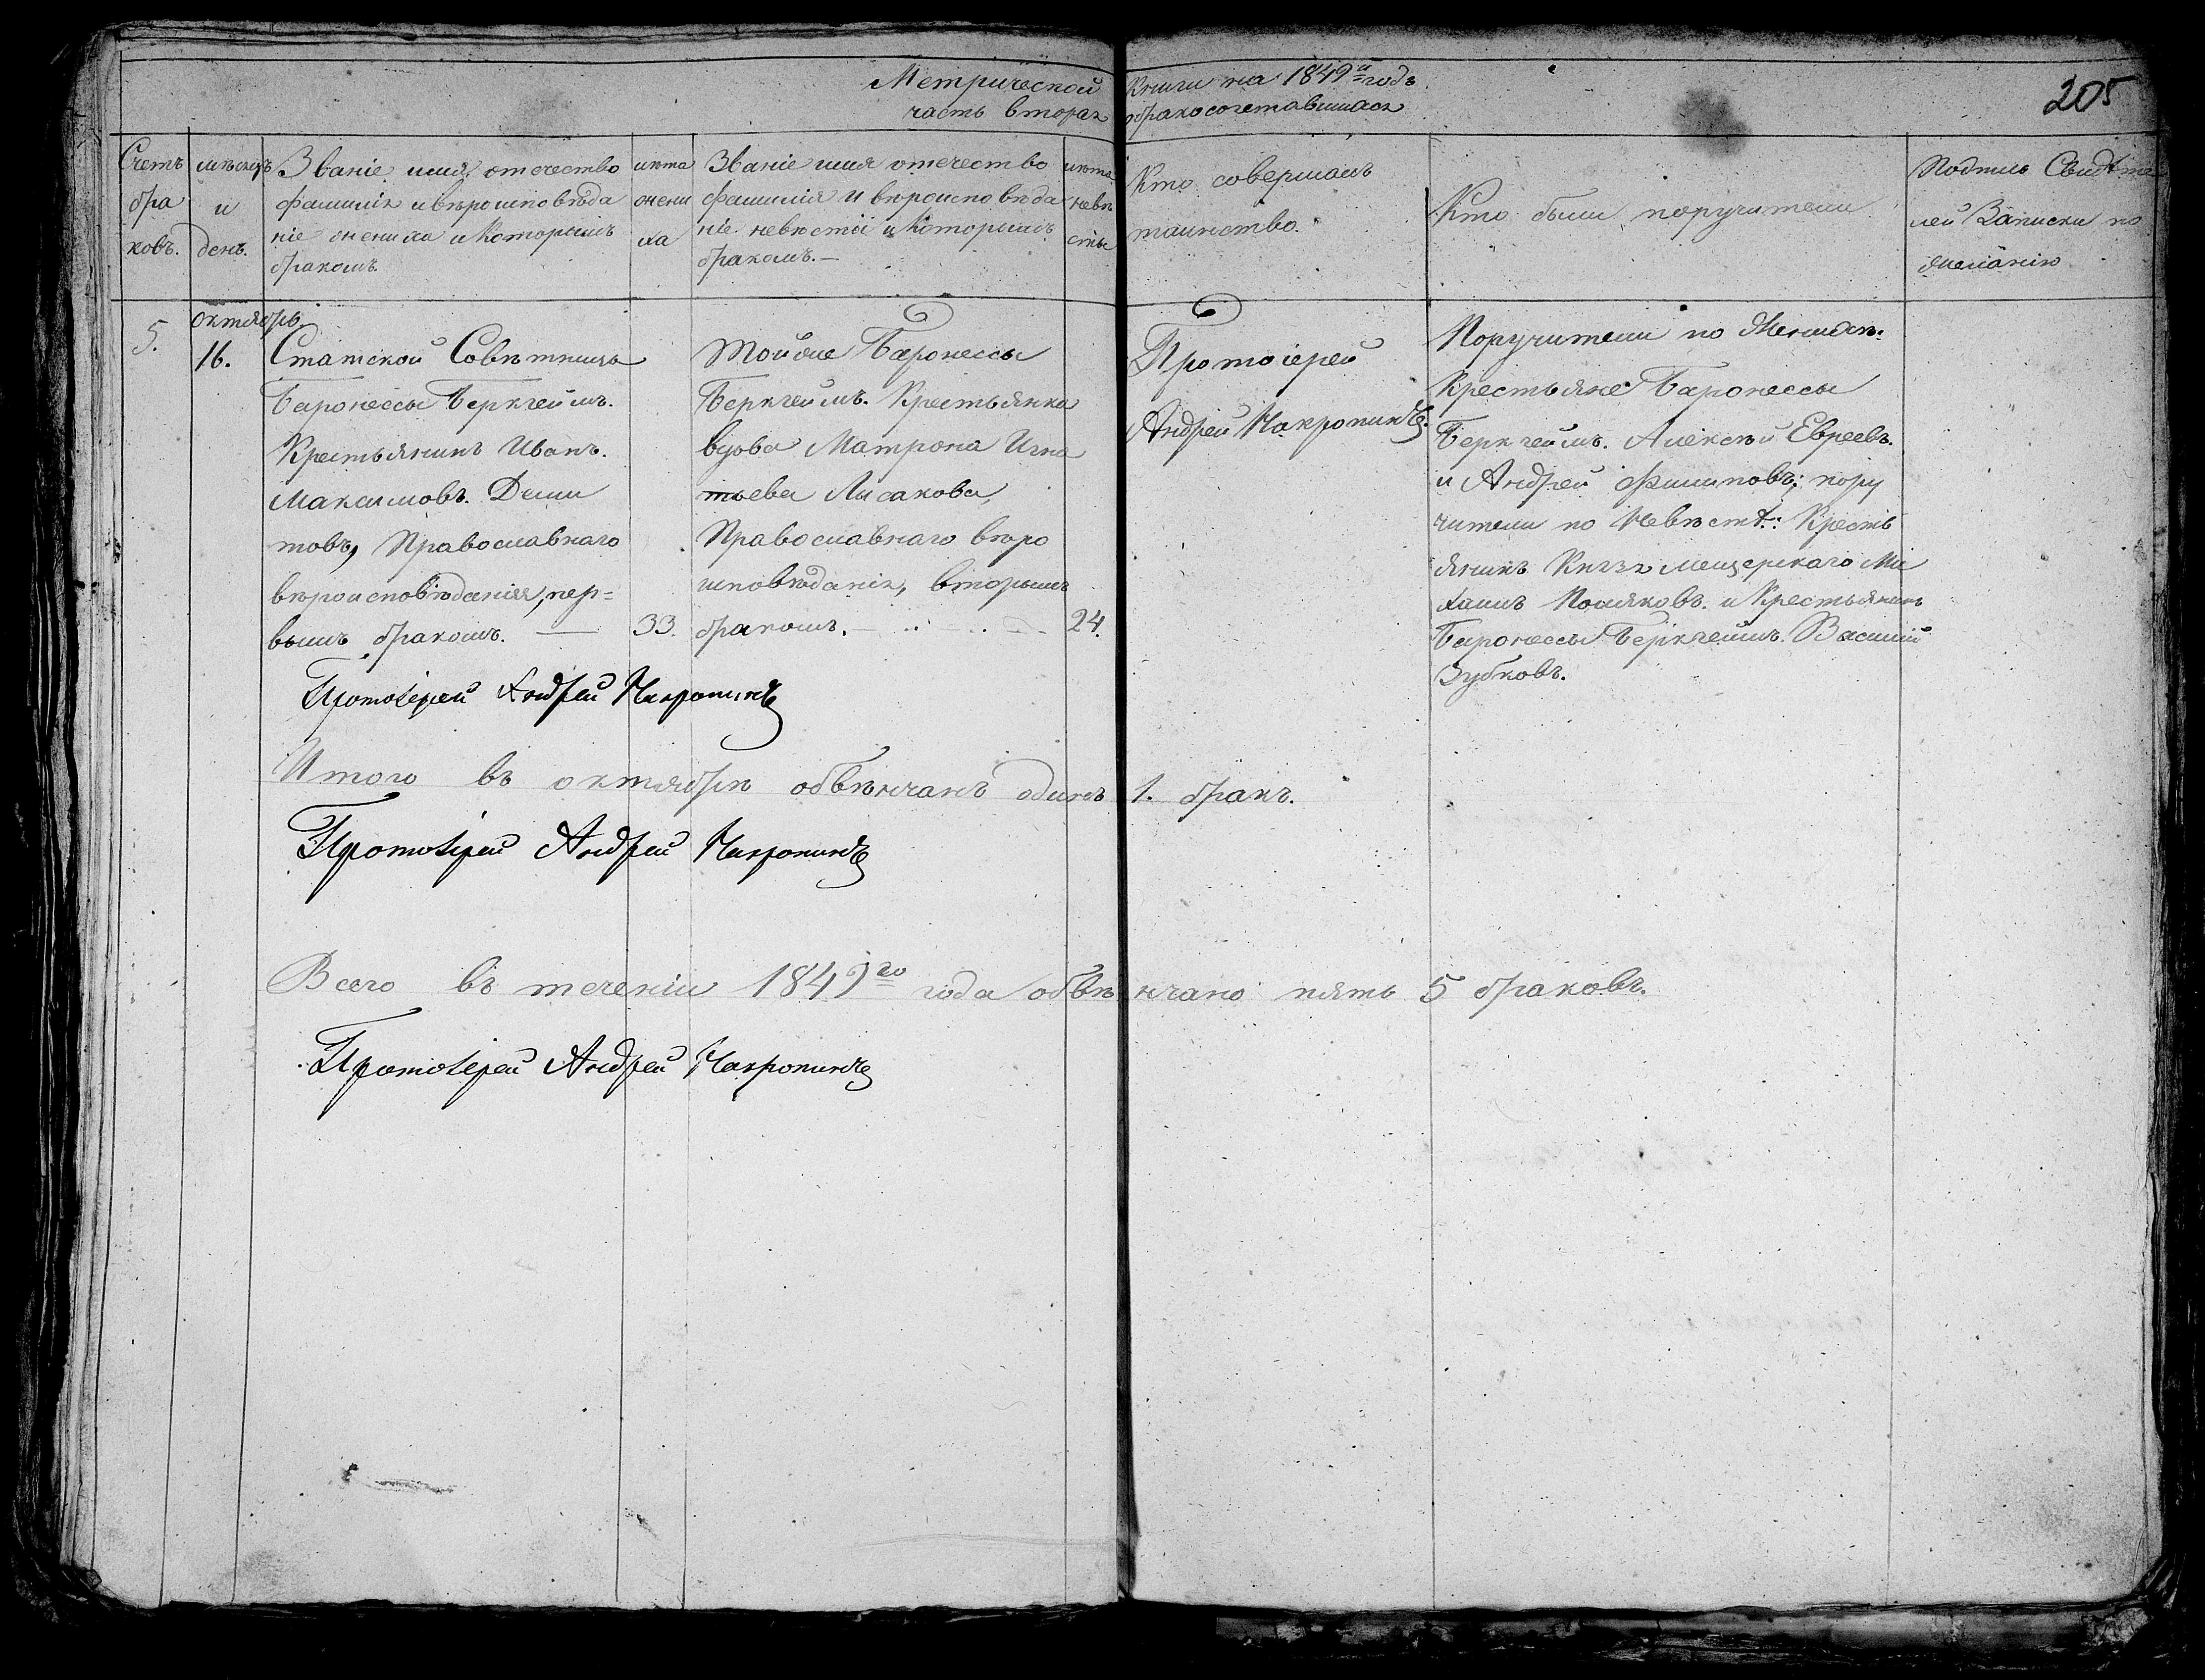 Метрической Книги на 1849й годъ
205
часть вторая бракосочетавшихся
Счетъ
бра
ковъ.
мѣсяцъ
и
день.
Званіе имя отечество
фамилія и вѣроисповѣда
ніе жениха и которымъ
бракомъ.
лѣта
жени
ха
Званіе имя отечество
фамилія и вѣроисповѣда
ніе невѣсты и которымъ
бракомъ.—
лѣта
невѣ
сты
Кто совершалъ
таинство.
Кто были поручители
Подпись Свидѣте
лей Записки по
желанію
5.
октябрь.
16.
Статской Совѣтницы
Баронессы Беркгеймъ.
Крестьянинъ Иванъ.
Максимовъ. Деми
товъ, Православнаго
вѣроисповѣданія, пер=
вымъ бракомъ. —
33.
Той же Баронессы
Беркгеймъ. Крестьянка
вдова Матрона Игна
тьева Лисакова,
Православнаго вѣро
исповѣданія, вторымъ
бракомъ.
24.
Протоіерей
Андрей
Поручители по Женихѣ:
Крестьяне Баронессы
Беркгеймъ. Алексѣй Евреевъ.
и Андрей Филиповъ; пору
чители по Невѣстѣ: Кресть
янинъ Князя Мещерскаго Ми
хаилъ Поляковъ. и Крестьянинъ
Баронессы Беркгеймъ. Василий
Зубковъ.
Протоіерей Андрей
Итого въ октябрѣ обвѣнчанъ одинъ 1. бракъ.
Протоіерей Андрей
Всего въ теченіи 1849го года обвѣнчано пять 5 браковъ.
Протоіерей Андрей